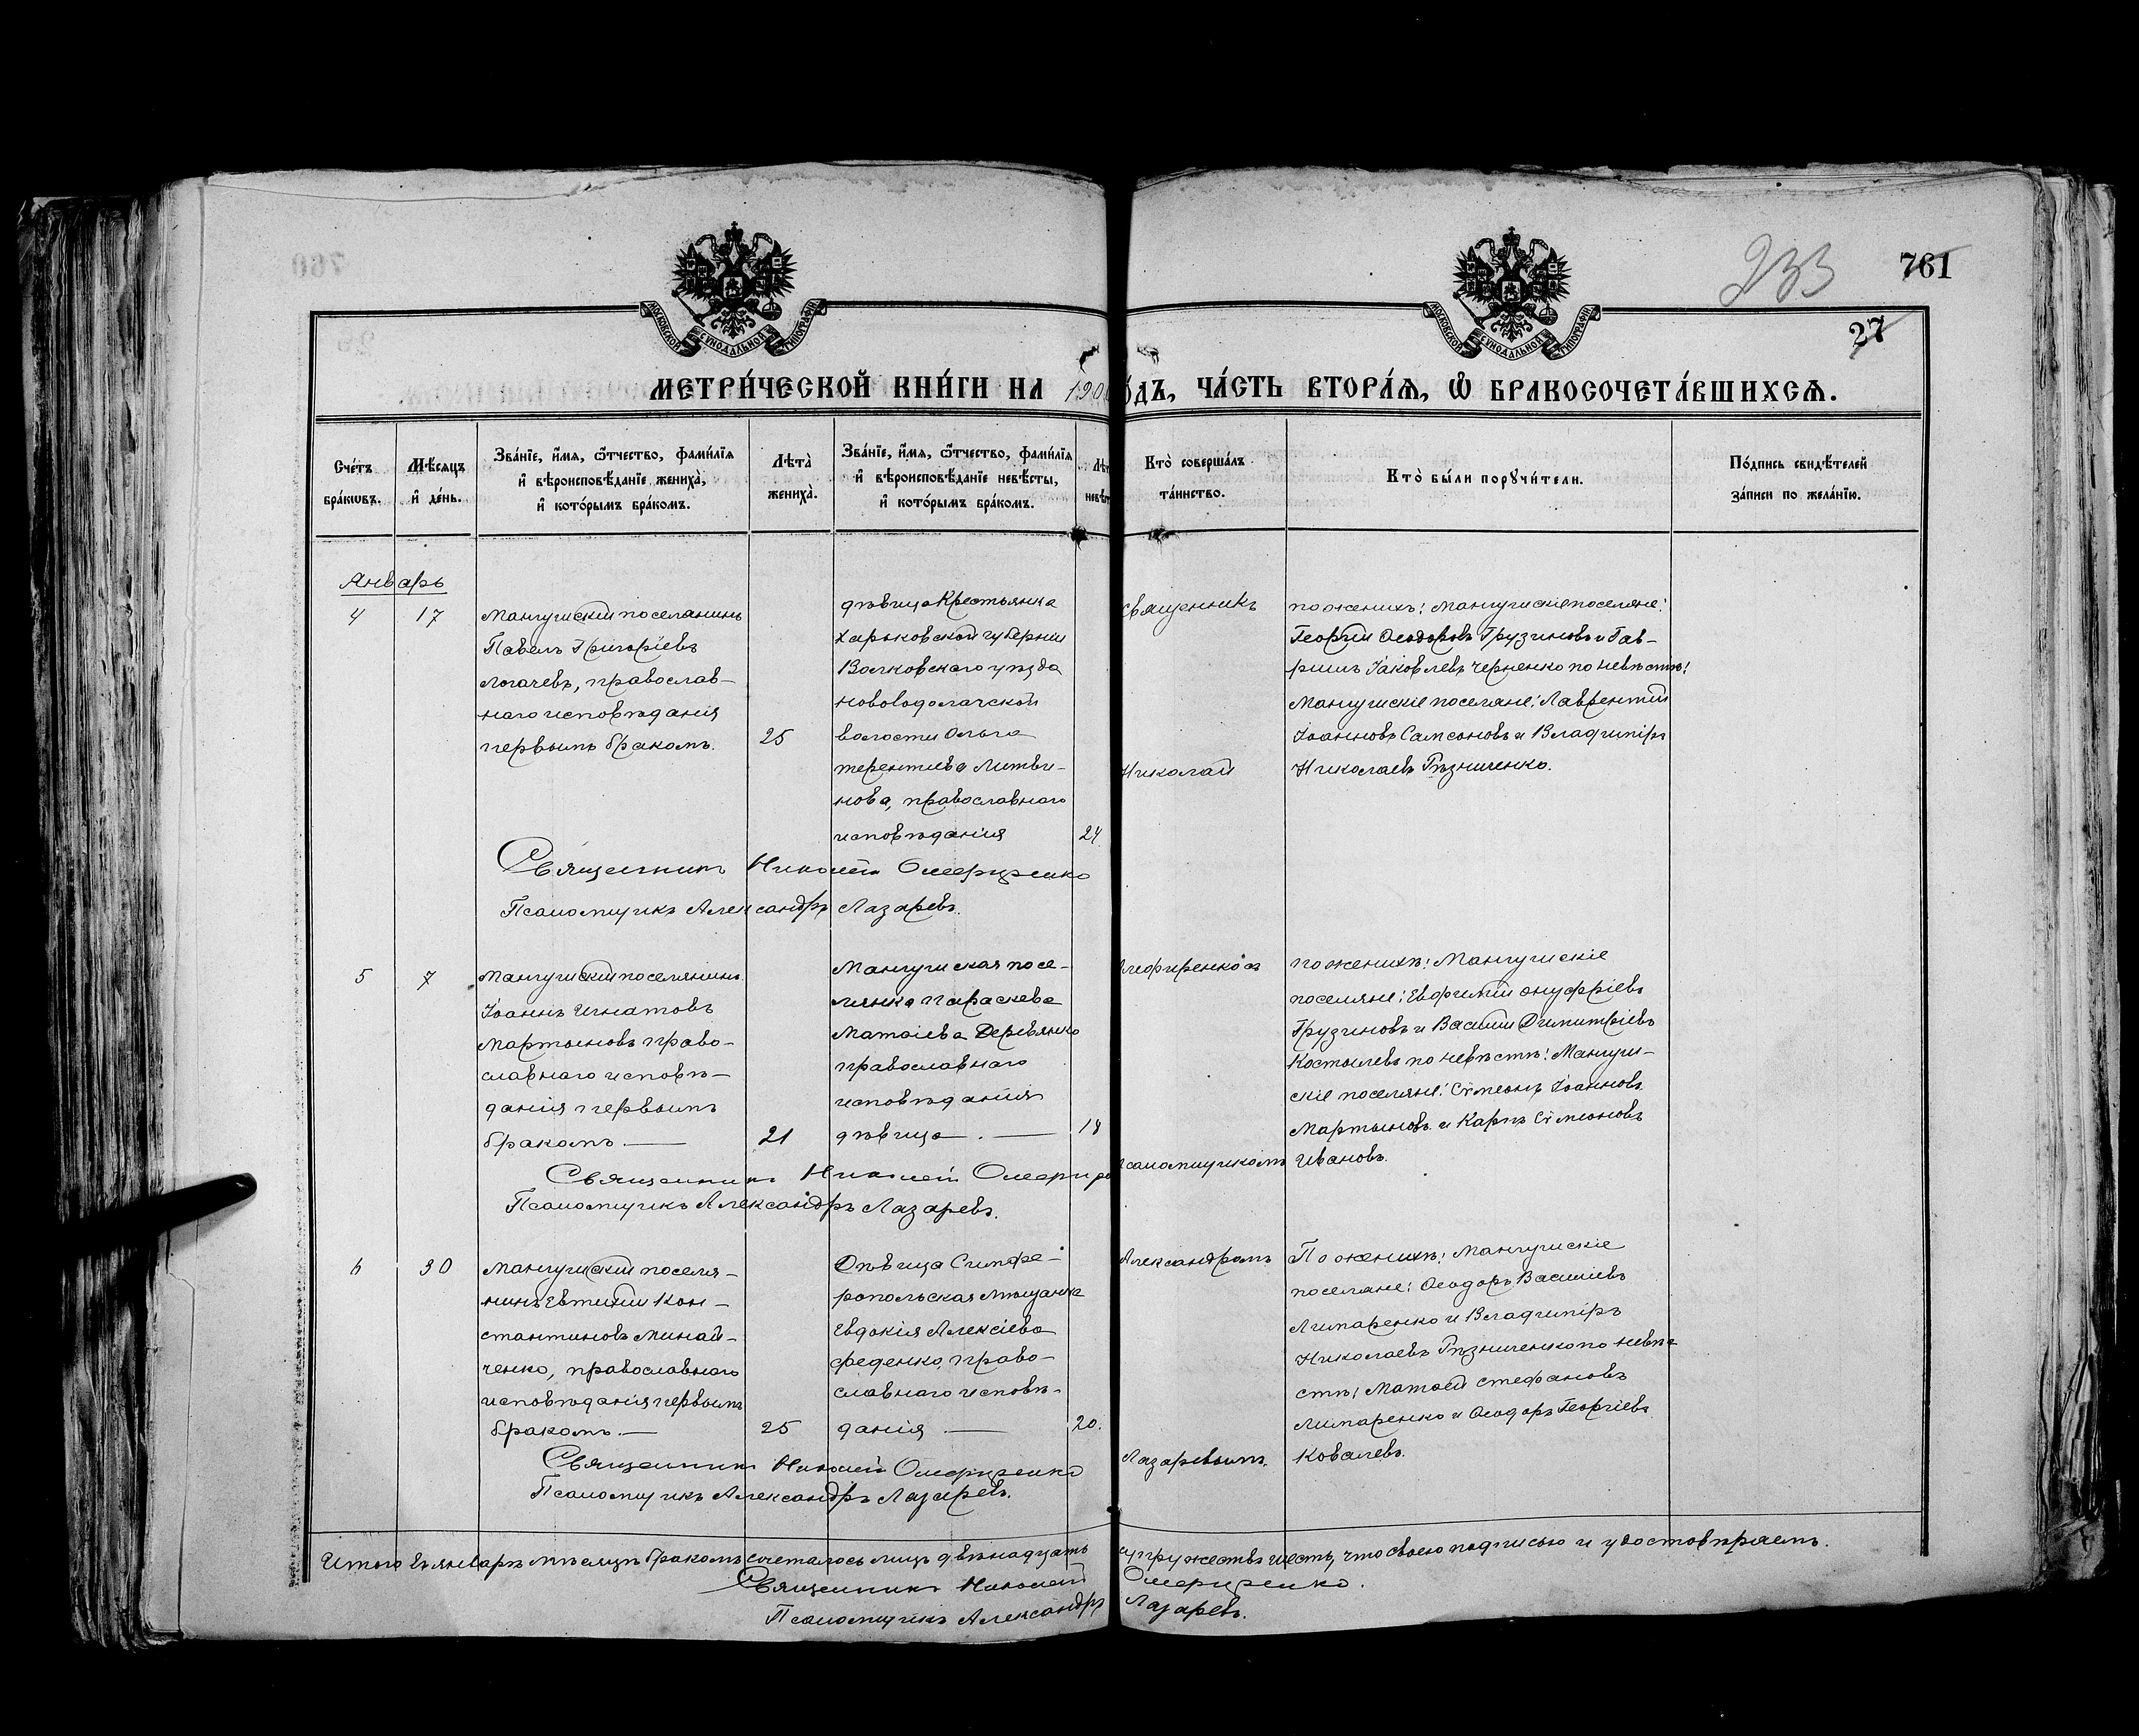 233
761
27
МОСКОВСКОЙ СУНОДАЛЬНОЙ ТИПОГРАФІИ
МОСКОВСКОЙ СУНОДАЛЬНОЙ ТИПОГРАФІИ
МЕТРИ́ЧЕСКОЙ КНИ́ГИ НА 190
О́ДЪ, ЧА́СТЬ ВТОРА́Я, Ѡ БРАКОСОЧЕТА́ВШИХСЯ.
Сче́тъ
бра́кѡвъ.
Мѣ́сяцъ
и҆ де́нь.
Зва́нїе, и҆́мя, ѻ҆́тчество, фами́лїя
и҆ вѣроисповѣ́данїе жениха̀,
и҆ кото́рымъ бра́комъ.
Лѣта̀
жениха̀.
Зва́нїе, и҆́мя, ѻ҆́тчество, фами́лїя
и҆ вѣроисповѣ́данїе невѣ́сты,
и҆ кото́рымъ бра́комъ.
Лѣт
невѣ́ст
Кто̀ соверша́лъ
та́инство.
Кто̀ бы́ли порꙋчи́тели.
По́дпись свидѣ́телей
за́писи по жела́нїю.
Январь
4
17
Мангушскій поселянинъ
Павелъ Григоріевъ
Логачевъ, православ-
наго исповѣданія
первымъ бракомъ.
25
дѣвица Крестьянка
Харьковской губерніи
Валковскаго уѣзда
Нововодолачской
волости Ольга
Терентиева Литви-
нова, православнаго
исповѣданія
24
Священникъ
Николай
по женихѣ: Мангушскіе поселяне:
Георгій Ѳеодоровъ Грузиновъ и Гав-
риилъ Іаковлевъ Черненко по невѣстѣ:
Мангушскіе поселяне: Лаврентій
Іоанновъ Самсоновъ и Владиміръ
Николаевъ Рѣзниченко.
Священникъ Николай Олефиренко
Псаломщикъ Александръ Лазаревъ.
5
7
Мангушскій поселянинъ
Іоаннъ Игнатовъ
Мартыновъ право-
славнаго исповѣ-
данія первымъ
бракомъ
21
Мангушская посе-
лянка Параскева
Матѳіева Деревянко
православнаго
исповѣданія
дѣвица
18
лефиренко съ
саломщикомъ
по женихѣ: Мангушскіе
поселяне: Евфимій Онуфріевъ
Грузиновъ и Василій Димитріевъ
Костылевъ по невѣстѣ: Мангуш-
скіе поселяне: Сѵмеонъ Іоанновъ
Мартыновъ и Карпъ Сѵмеоновъ
Ивановъ.
Священникъ Николай Олефире
Псаломщикъ Александръ Лазаревъ.
6
30
Мангушскій поселя-
нинъ Евтихій Кон-
стантиновъ Минай-
ченко, православнаго
исповѣданія первымъ
бракомъ.
25
Дѣвица Симфе-
ропольская мѣщанка
Евдокія Алексіева
Феденко, право-
славнаго исповѣ-
данія
20.
Александромъ
Лазаревымъ.
По женихѣ: Мангушскіе
поселяне: Ѳеодоръ Василіевъ
Лимаренко и Владиміръ
Николаевъ Рѣзниченко по невѣ-
стѣ: Матѳей Стефановъ
Лимаренко и Ѳеодоръ Георгіевъ
Ковалевъ.
Священникъ Николай Олефиренко
Псаломщикъ Александръ Лазаревъ.
Итого въ январѣ мѣсяцѣ бракомъ сочеталось лицъ двѣнадцать
супружествъ шесть, что своею подписью и удостовѣряемъ.
Священникъ Николай Олефиренко.
Псаломщикъ Александръ Лазаревъ.